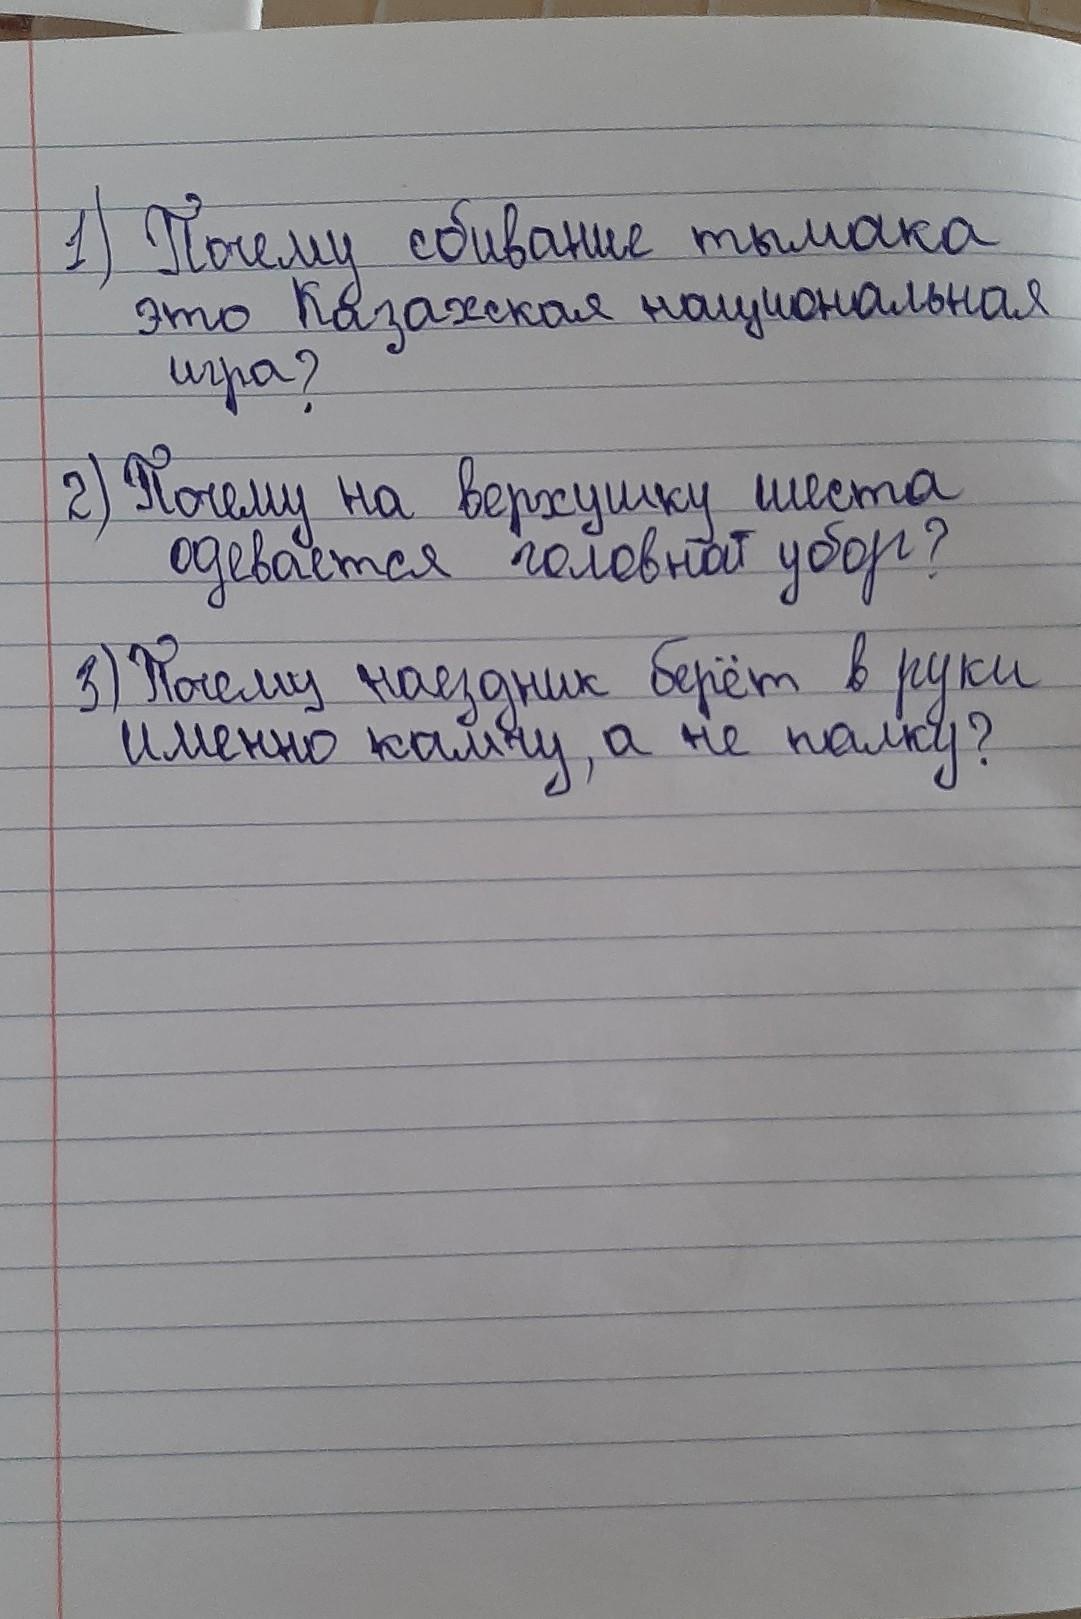 1) Почему сбивание тымака
это Казахская национальная
игра?
2) Почему на верхушку шеста
одевается головной убор?
3) Почему наездник берёт в руки
именно камчу, а не палку?